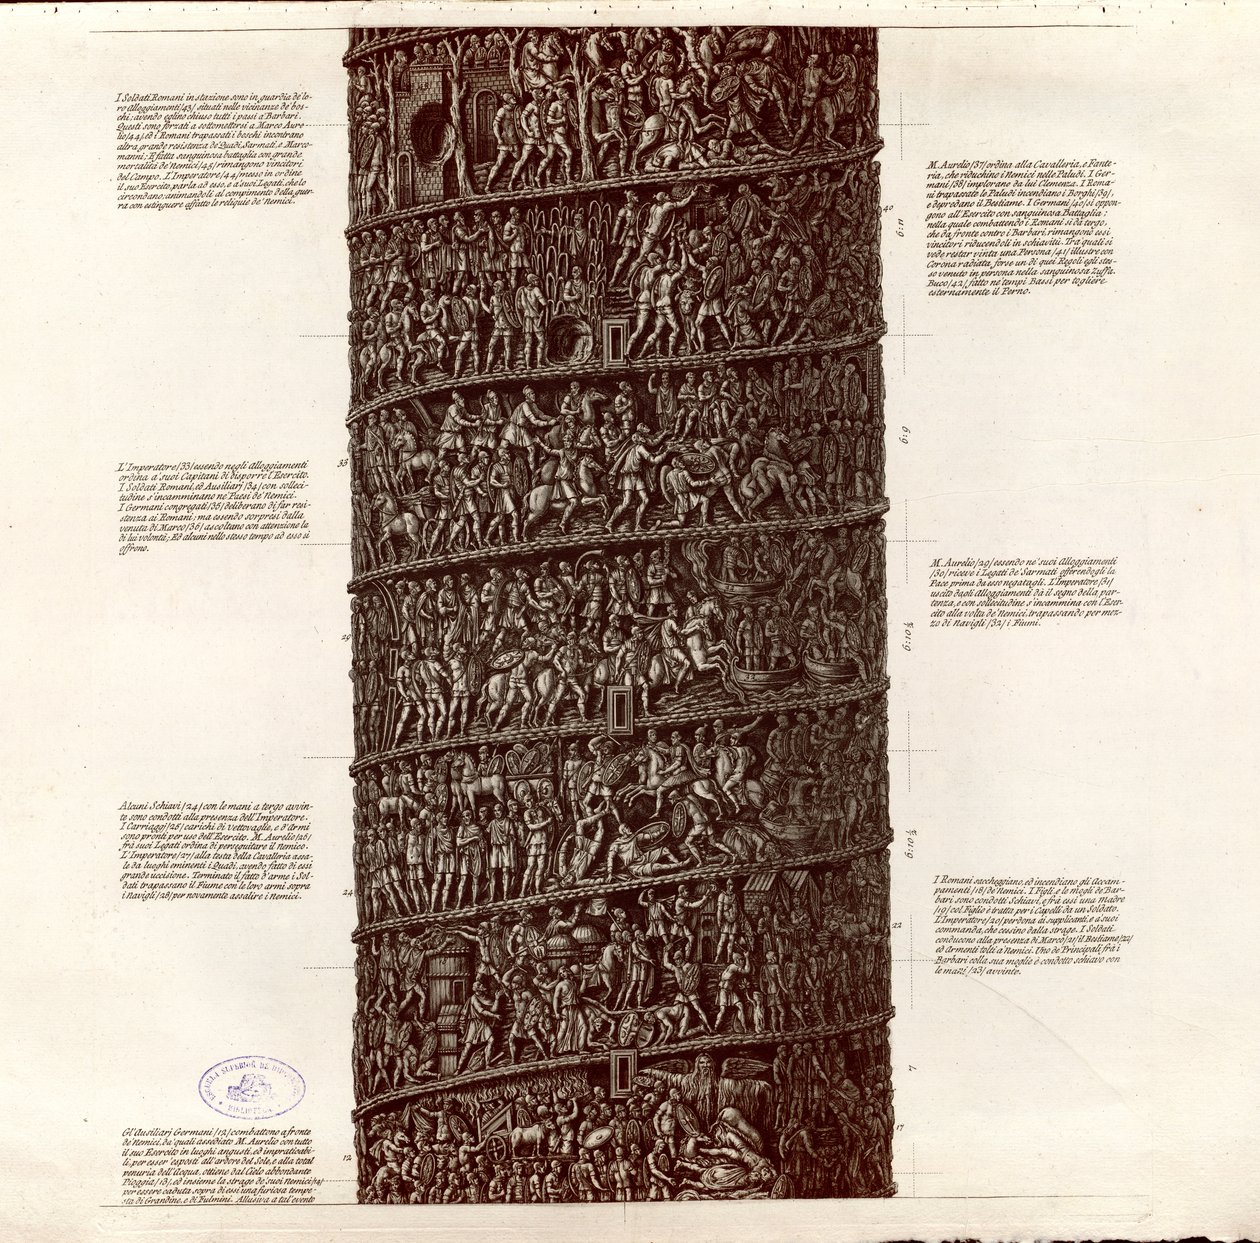 I Soldati Romani in stazione sono in guardia de' lo-
ro Alloggiamenti /43/ situati nelle vicinanze de' bos-
chi; avendo eglino chiuso tutti i passi a' Barbari.
Questi sono forzati a sottomettersi a Marco Aure-
lio /44/, ed i Romani trapassati i boschi incontrano
altra grande resistenza de' Quadi, Sarmati, e Marco-
manni; E fatta sanguinosa battaglia con grande
mortalità de' Nemici /45/ rimangono vincitori
del Campo. L'Imperatore /44/ messo in ordine
il suo Esercito, parla ad esso, e a' suoi Legati, che lo
circondano; animandoli al compimento della guer-
ra con estinguere affatto le reliquie de' Nemici.
M. Aurelio /37/ ordina alla Cavalleria, e Fante-
ria, che riduchino i Nemici nelle Paludi. I Ger-
mani /38/ implorano da lui Clemenza. I Roma-
ni trapassate le Paludi incendiano i Borghi /39/,
e depredano il Bestiame. I Germani /40/ si oppon-
gono all'Esercito con sanguinosa Battaglia:
nella quale combattendo i Romani si dà tergo,
che da fronte contro i Barbari, rimangono essi
vincitori riducendoli in schiavitù. Tra quali si
vede restar vinta una Persona /41/ illustre con
Corona radiata, forse un di quei Regoli egli stes-
so venuto in persona nella sanguinosa Zuffa.
Buco /42/ fatto ne' tempi Bassi per togliere
esternamente il Perno.
40
6:11
6:9
L'Imperatore /33/ essendo negli alloggiamenti
ordina a' suoi Capitani di disporre l'Esercito.
I Soldati Romani, ed Ausiliarj /34/ con solleci-
tudine s'incamminano ne' Paesi de' Nemici.
I Germani congregati /35/ deliberano di far resi-
stenza ai Romani; ma essendo sorpresi dalla
venuta di Marco /36/ ascoltano con attenzione la
di lui volontà; Ed alcuni nello stesso tempo ad esso si
offrono.
33
M. Aurelio /29/ essendo ne' suoi Alloggiamenti
/30/ riceve i Legati de' Sarmati offerendogli la
Pace prima da esso negatagli. L'Imperatore /31/
uscito dagli alloggiamenti dà il segno della par-
tenza, e con sollecitudine s'incammina con l'Eser-
cito alla volta de' Nemici, trapassando per mez-
zo di Navigli /32/ i Fiumi.
29
6:10 ½
Alcuni Schiavi /24/ con le mani a tergo avvin-
te sono condotti alla presenza dell'Imperatore.
I Carriaggi /25/ carichi di Vettovaglie, e d'Armi
sono pronti per uso dell'Esercito. M. Aurelio /26/
frà suoi Legati ordina di perseguitare il nemico.
L'Imperatore /27/ alla testa della Cavalleria assa-
le da luoghi eminenti i Quadi, avendo fatto di essi
grande uccisione. Terminato il fatto d'arme i Sol-
dati trapassano il Fiume con le loro armi sopra
i Navigli /28/ per novamente assalire i nemici.
24
6:10 ½
I Romani saccheggiano, ed incendiano gli Accam-
pamenti /18/ de' Nemici. I Figli, e le mogli de' Bar-
bari sono condotti Schiavi, e frà essi una madre
/19/ col Figlio è tratta per i Capelli da un Soldato.
L'Imperatore /20/ perdona ai supplicanti, e a' suoi
commanda, che cessino dalla strage. I Soldati
conducono alla presenza di Marco /21/ il Bestiame /22/
ed Armenti tolti a' Nemici. Uno de' Principali frà i
Barbari colla sua moglie è condotto schiavo con
le mani /23/ avvinte.
22
7
17
ESCUELA SUPERIOR DE
BIBLIOTECA
Gl'Ausiliarj Germani /12/ combattono a fronte
de' Nemici, da' quali assediato M. Aurelio con tutto
il suo Esercito in luoghi angusti, ed impraticabi-
li, per esser esposti all'ardore del Sole, e alla total
penuria dell'Acqua, ottiene dal Cielo abbondante
Pioggia /13/, ed insieme la strage de' suoi Nemici /14/
per essere caduta sopra di essi una furiosa tempe-
sta di Grandine, e di Fulmini. Allusiva a tal'evento
12